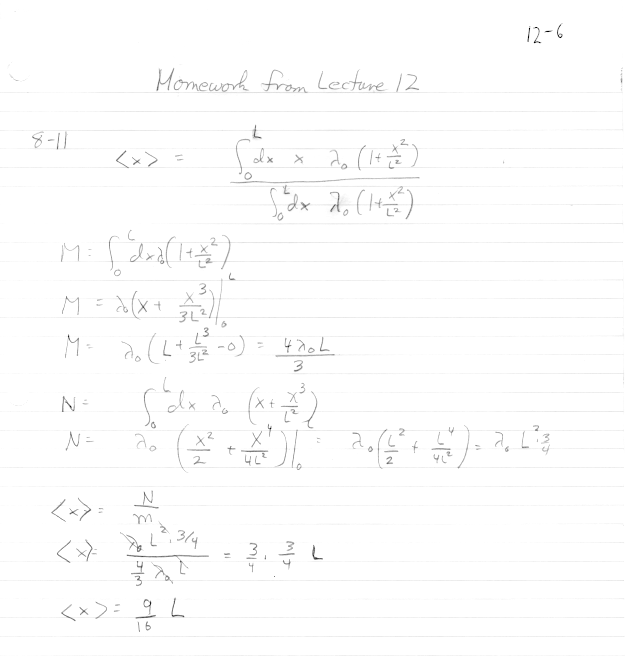 12-6
Homework from Lecture 12
8-11 <x> = ∫₀ᴸ dx x λ₀ (1+ x²/L²) / ∫₀ᴸ dx λ₀ (1+ x²/L²)
M = ∫₀ᴸ dx λ₀ (1+ x²/L²)
M = λ₀ (x + x³/3L²) |₀ᴸ
M = λ₀ (L + L³/3L² - 0) = 4λ₀L/3
N = ∫₀ᴸ dx λ₀ (x + x³/L²)
N = λ₀ (x²/2 + x⁴/4L²) |₀ᴸ = λ₀ (L²/2 + L⁴/4L²) = λ₀ L² · 3/4
<x> = N/m
<x> = λ₀ L² · 3/4 / 4/3 λ₀ L = 3/4 · 3/4 L
<x> = 9/16 L